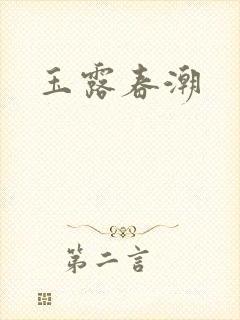 玉露春潮
第二言